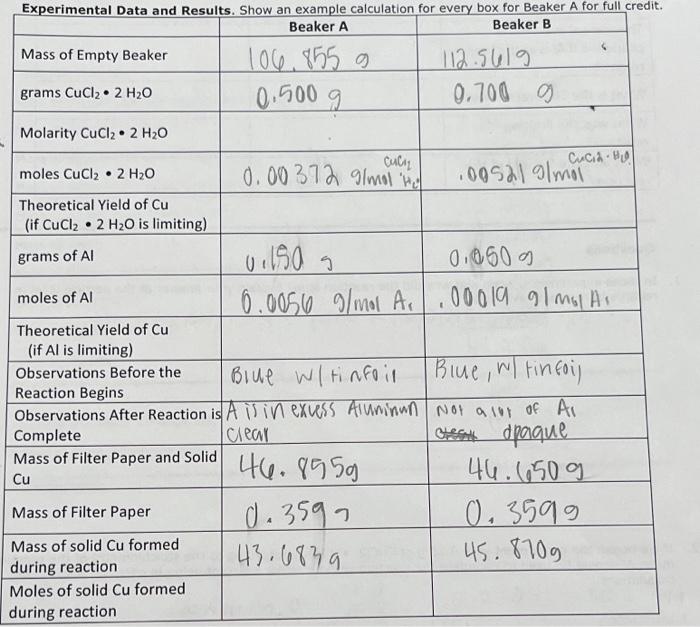 Experimental Data and Results. Show an example calculation for every box for Beaker A for full credit.
Beaker A Beaker B
Mass of Empty Beaker 106.855 g 112.561g
grams CuCl₂ • 2 H₂O 0.500 g 0.700 g
Molarity CuCl₂ • 2 H₂O
moles CuCl₂ • 2 H₂O 0.00372 g/mol CuCl₂ .00521 g/mol CuCl2 · H₂O
Theoretical Yield of Cu
(if CuCl₂ • 2 H₂O is limiting)
grams of Al 0.150 g 0.050 g
moles of Al 0.0056 g/mol Al .00019 g/mol Al
Theoretical Yield of Cu
(if Al is limiting)
Observations Before the
Reaction Begins
Blue w/ tinfoil Blue, w/ tinfoil
Observations After Reaction is
Complete
A is in excess Aluminum
clear
Not a lot of Al
opaque
Mass of Filter Paper and Solid
Cu
46.895g 46.650 g
Mass of Filter Paper 0.359g 0.359g
Mass of solid Cu formed
during reaction
43.683g 45.870g
Moles of solid Cu formed
during reaction